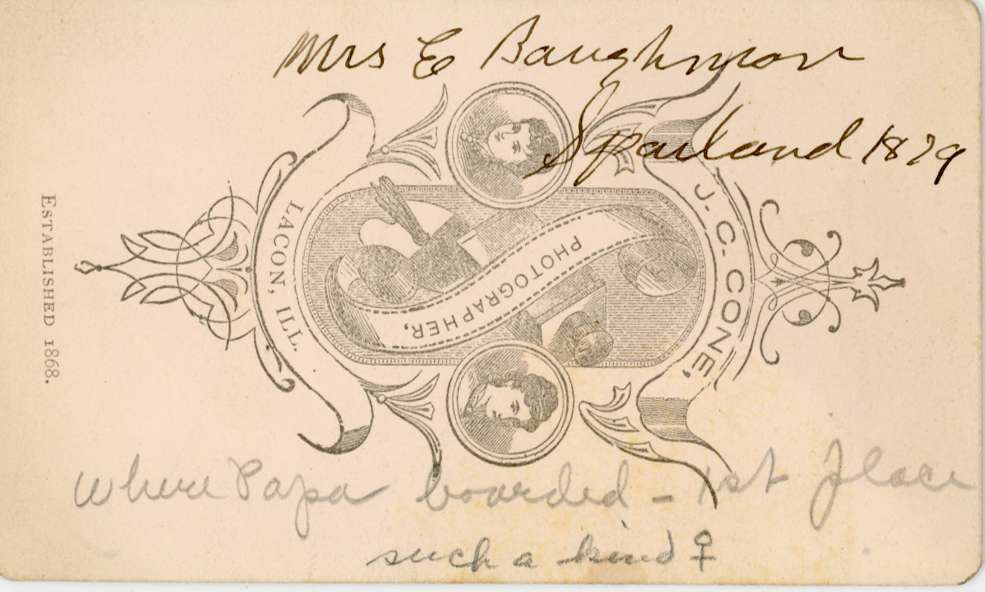 Mrs E Baughman
Sparland 1879
J. C. CONE,
PHOTOGRAPHER,
LACON, ILL.
ESTABLISHED 1868.
where Papa boarded – 1st place
such a kind ♀